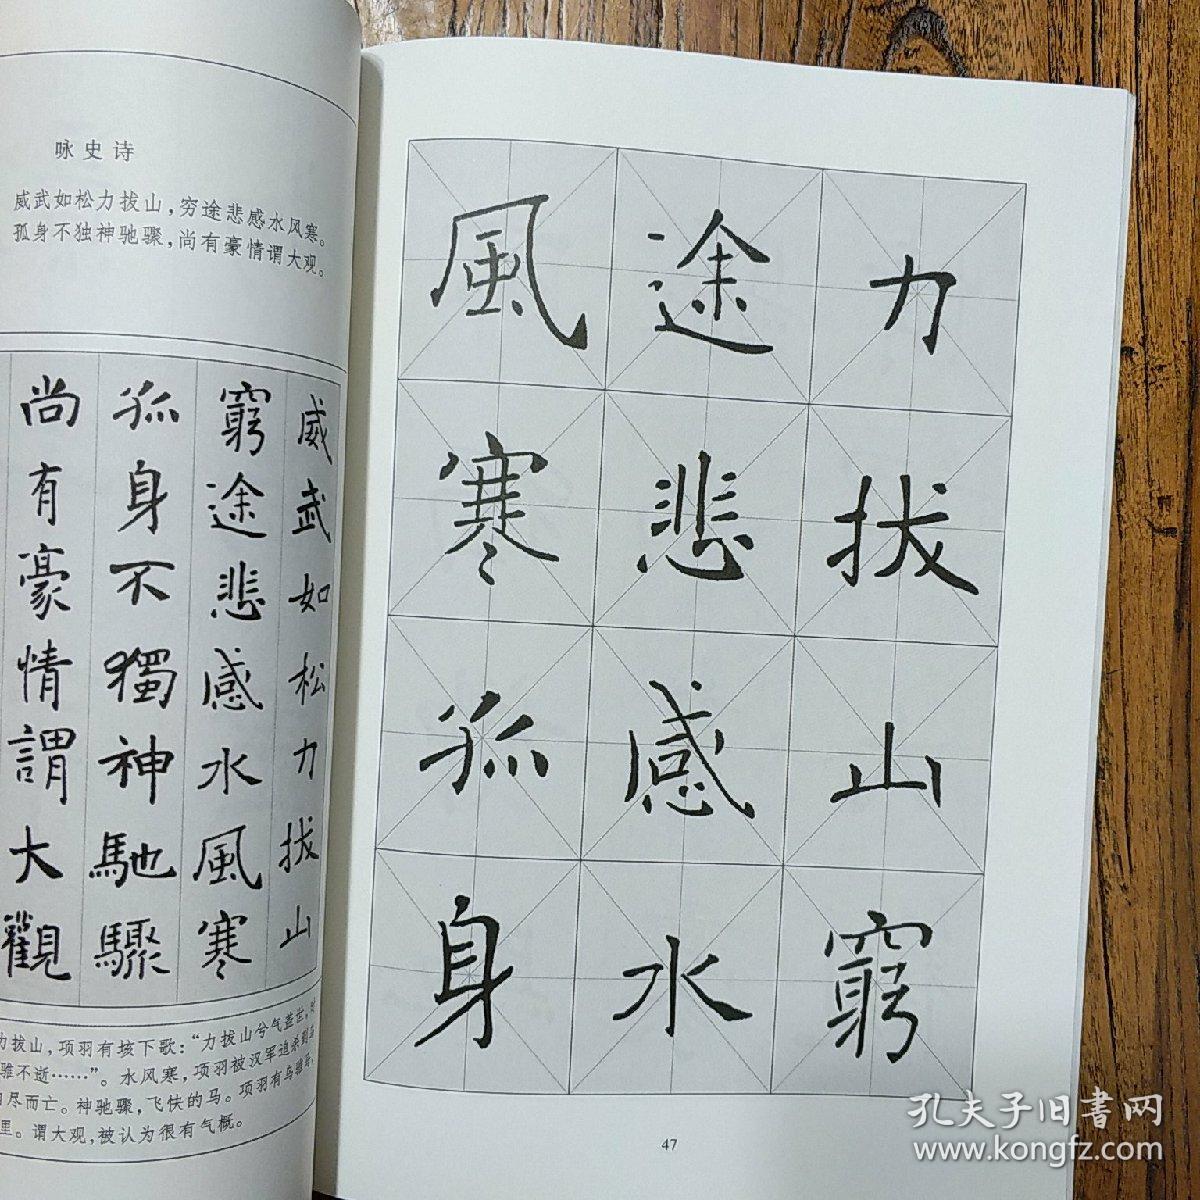 咏史诗
威武如松力拔山，穷途悲感水风寒。
孤身不独神驰骤，尚有豪情谓大观。
威武如松力拔山
窮途悲感水風寒
孤身不獨神馳驟
尚有豪情謂大觀
力拔山，项羽有垓下歌：“力拔山兮气盖世，
骓不逝……”。水风寒，项羽被汉军追杀到
尽而亡。神驰骤，飞快的马。项羽有乌骓
里。谓大观，被认为很有气概。
力拔山窮
途悲感水
風寒孤身
47
孔夫子旧书网
www.kongfz.com